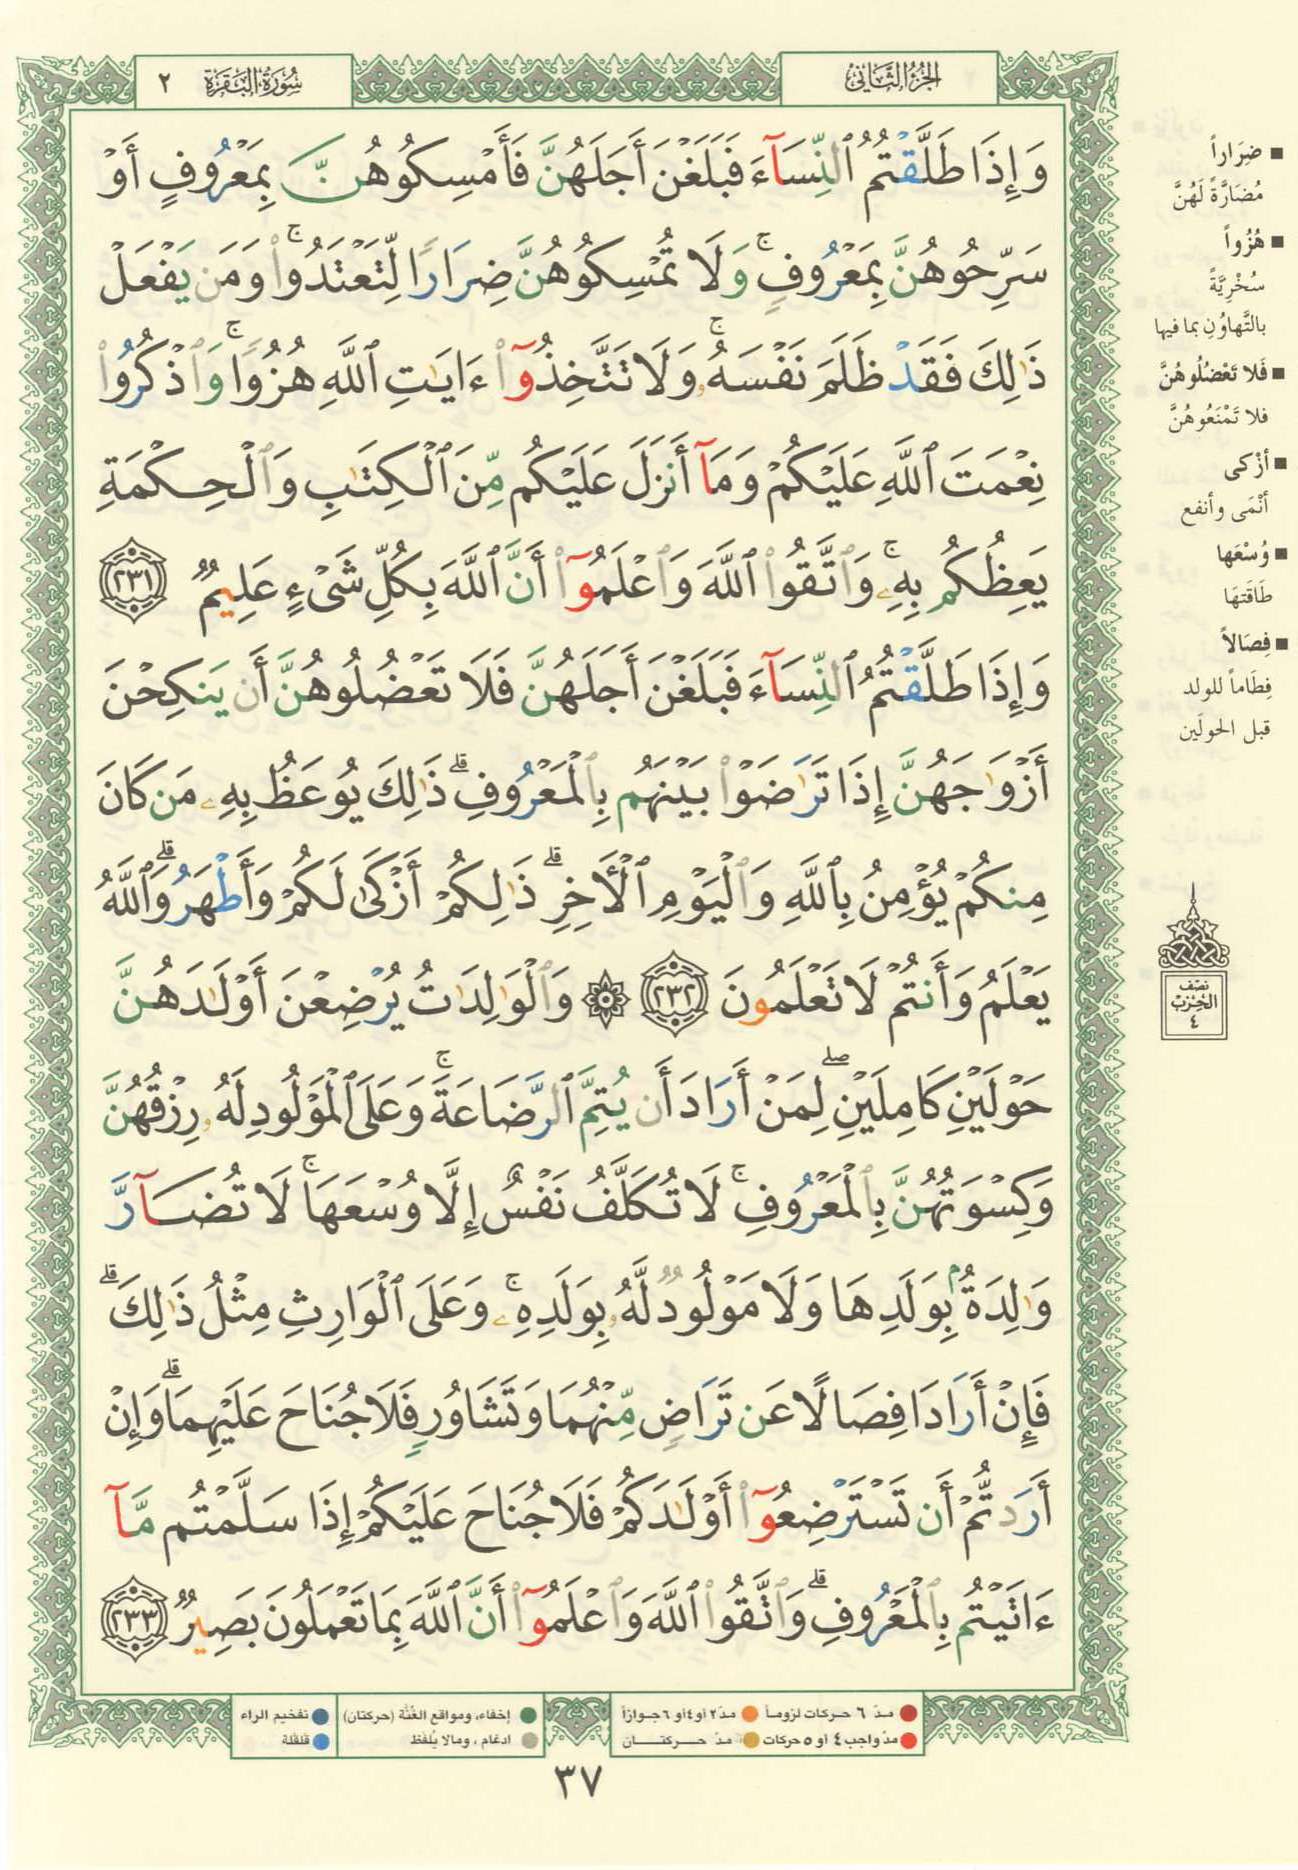 الجزء الثاني
سورة البقرة ٢
وَإِذَا طَلَّقْتُمُ ٱلنِّسَآءَ فَبَلَغْنَ أَجَلَهُنَّ فَأَمْسِكُوهُنَّ بِمَعْرُوفٍ أَوْ
سَرِّحُوهُنَّ بِمَعْرُوفٍ ۚ وَلَا تُمْسِكُوهُنَّ ضِرَارًا لِّتَعْتَدُوا۟ ۚ وَمَن يَفْعَلْ
ذَٰلِكَ فَقَدْ ظَلَمَ نَفْسَهُۥ ۚ وَلَا تَتَّخِذُوٓا۟ ءَايَٰتِ ٱللَّهِ هُزُوًا ۚ وَٱذْكُرُوا۟
نِعْمَتَ ٱللَّهِ عَلَيْكُمْ وَمَآ أَنزَلَ عَلَيْكُم مِّنَ ٱلْكِتَٰبِ وَٱلْحِكْمَةِ
يَعِظُكُم بِهِۦ ۚ وَٱتَّقُوا۟ ٱللَّهَ وَٱعْلَمُوٓا۟ أَنَّ ٱللَّهَ بِكُلِّ شَىْءٍ عَلِيمٌ ٢٣١
وَإِذَا طَلَّقْتُمُ ٱلنِّسَآءَ فَبَلَغْنَ أَجَلَهُنَّ فَلَا تَعْضُلُوهُنَّ أَن يَنكِحْنَ
أَزْوَٰجَهُنَّ إِذَا تَرَٰضَوْا۟ بَيْنَهُم بِٱلْمَعْرُوفِ ۗ ذَٰلِكَ يُوعَظُ بِهِۦ مَن كَانَ
مِنكُمْ يُؤْمِنُ بِٱللَّهِ وَٱلْيَوْمِ ٱلْءَاخِرِ ۗ ذَٰلِكُمْ أَزْكَىٰ لَكُمْ وَأَطْهَرُ ۗ وَٱللَّهُ
يَعْلَمُ وَأَنتُمْ لَا تَعْلَمُونَ ٢٣٢ ۞ وَٱلْوَٰلِدَٰتُ يُرْضِعْنَ أَوْلَٰدَهُنَّ
حَوْلَيْنِ كَامِلَيْنِ ۖ لِمَنْ أَرَادَ أَن يُتِمَّ ٱلرَّضَاعَةَ ۚ وَعَلَى ٱلْمَوْلُودِ لَهُۥ رِزْقُهُنَّ
وَكِسْوَتُهُنَّ بِٱلْمَعْرُوفِ ۚ لَا تُكَلَّفُ نَفْسٌ إِلَّا وُسْعَهَا ۚ لَا تُضَآرَّ
وَٰلِدَةٌۢ بِوَلَدِهَا وَلَا مَوْلُودٌ لَّهُۥ بِوَلَدِهِۦ ۚ وَعَلَى ٱلْوَارِثِ مِثْلُ ذَٰلِكَ ۗ
فَإِنْ أَرَادَا فِصَالًا عَن تَرَاضٍ مِّنْهُمَا وَتَشَاوُرٍ فَلَا جُنَاحَ عَلَيْهِمَا ۗ وَإِنْ
أَرَدتُّمْ أَن تَسْتَرْضِعُوٓا۟ أَوْلَٰدَكُمْ فَلَا جُنَاحَ عَلَيْكُمْ إِذَا سَلَّمْتُم مَّآ
ءَاتَيْتُم بِٱلْمَعْرُوفِ ۗ وَٱتَّقُوا۟ ٱللَّهَ وَٱعْلَمُوٓا۟ أَنَّ ٱللَّهَ بِمَا تَعْمَلُونَ بَصِيرٌ ٢٣٣
■ ضِرَاراً
مُضَارَّةً لَهُنَّ
■ هُزُواً
سُخْرِيَّةً
بالتَّهاوُنِ بما فيها
■ فَلا تَعْضُلُوهُنَّ
فلا تَمْنَعُوهُنَّ
■ أزْكى
أنْمَى وأنفع
■ وُسْعَها
طَاقَتهَا
■ فِصَالاً
فِطَاماً للولد
قبل الحولَين
نصف
الحزب
٤
مدّ ٦ حركات لزوماً ● مدّ ٢ أو ٤ أو ٦ جوازاً
مدّ واجب ٤ أو ٥ حركات ● مدّ حركتان
إخفاء، ومواقع الغُنَّة (حركتان)
ادغام، ومالا يُلفظ
تفخيم الراء
قلقلة
٣٧